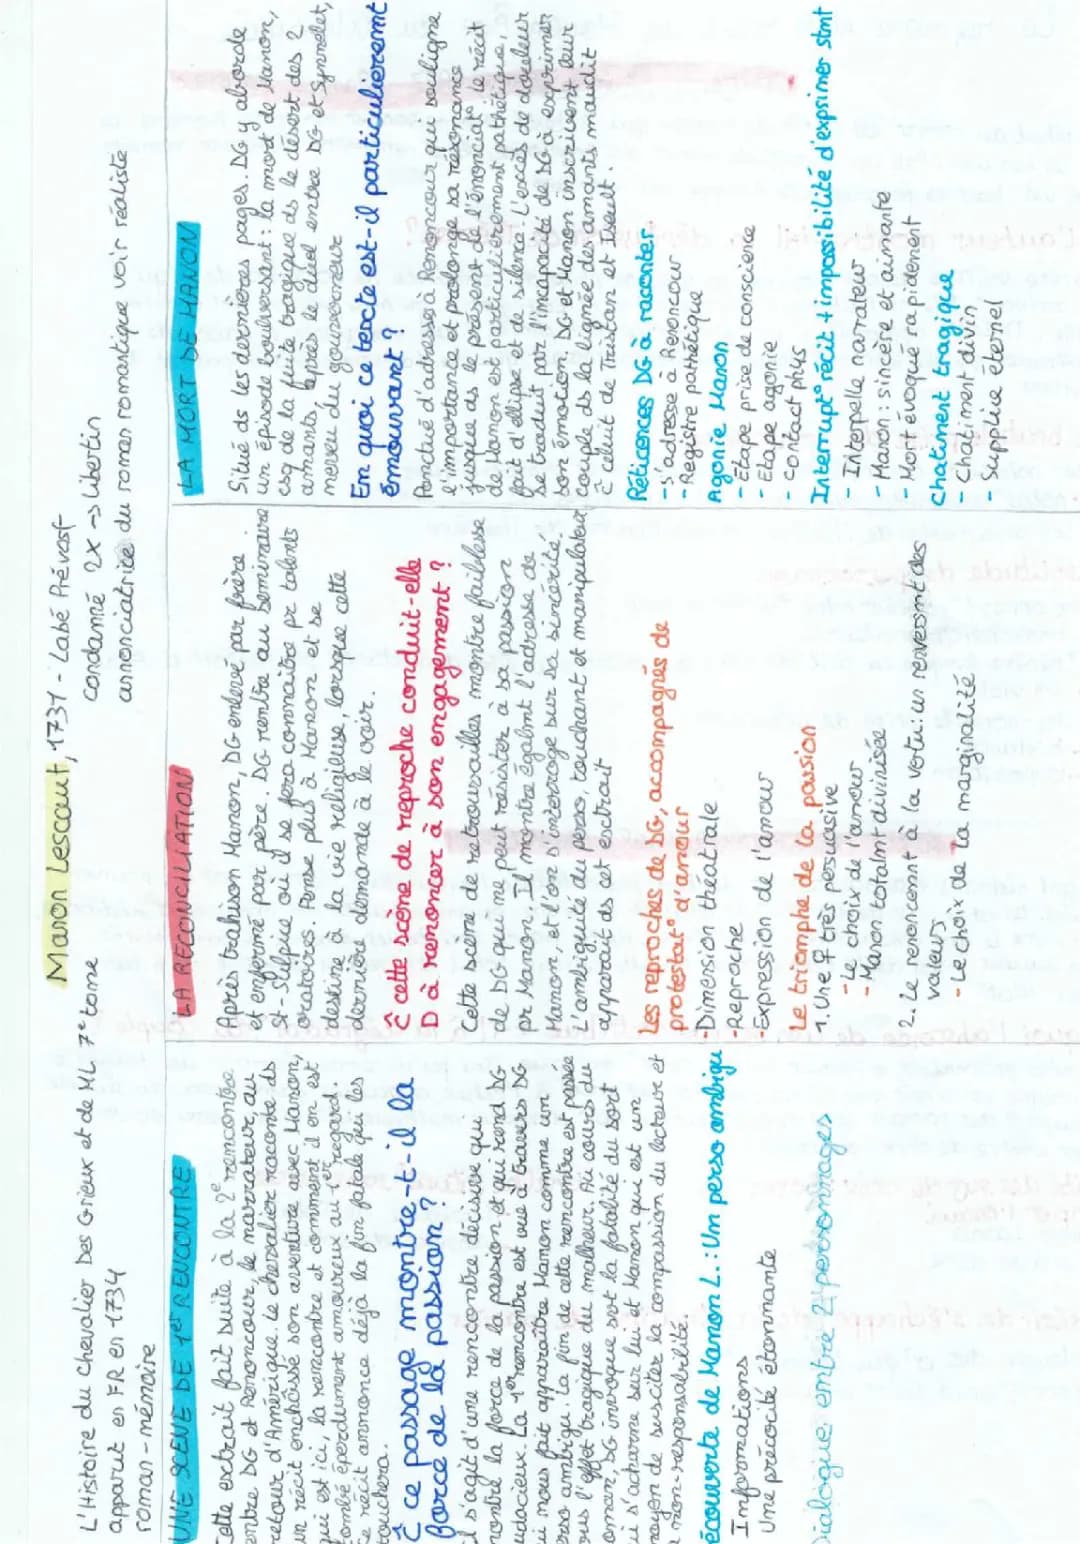 Manon Lescaut, 1731 - L'abé Prévost
L'Histoire du Chevalier Des Grieux et de ML 7e tome
apparut en FR en 1734
roman-mémoire
condamné 2x -> libertin
annonciatrice du roman romantique voir réaliste
UNE SCENE DE 1ère RENCONTRE
Cette extrait fait suite à la 2e rencontre
entre DG et Renoncour, le narrateur au
retour d'Amérique. Le chevalier raconte ds
un récit enchâssé son aventure avec Manon,
qui est ici, la rencontre et comment il en est
tombé éperdument amoureux au 1er regard.
Ce récit annonce déjà la fin fatale qui les
touchera.
Ê ce passage montre-t-il la
force de la passion ?
Il s'agit d'une rencontre décisive qui
montre la force de la passion et qui rend DG
audacieux. La 1ère rencontre est vue à travers DG
qui nous fait apparaître Manon comme un
perso ambigu. La fin de cette rencontre est passée
sous l'effet tragique du malheur. Au cour du
roman, DG invoque svt la fatalité du sort
qui s'acharne sur lui et Manon que est un
moyen de susciter la compassion du lecteur et
a non-responsabilité.
écouverte de Manon L : Un perso ambigu
Informations
Une précocité étonnante
Dialogue entre 2 personnages
LA RÉCONCILIATION
Après trahison Manon, DG enlevé par frère
et enfermé par père. DG rentre au Seminaire
St-Sulpice où il se fera connaître pr talents
oratoires. Pense plus à Manon et se
destine à la vie religieuse, lorsque cette
dernière demande à le voir.
Ê cette scène de reproche conduit-elle
D à renoncer à son engagement ?
Cette scène de retrouvailles montre faiblesse
de DG qui ne peut résister à sa passion
pr Manon. Il montre égalmt l'adresse de
Manon et l'on s'interroge sur sa sincérité.
L'ambiguïté du perso, touchant et manipulateur
apparaît ds cet extrait
Les reproches de DG, accompagnés de
protestat° d'amour
- Dimension théâtrale
- Reproche
- Expression de l'amour
Le triomphe de la passion
1. Une F très persuasive
- Le choix du coeur
- Manon totalmt divinisée
2. Le renoncemt à la vertu : un renversmt des
valeurs
- Le choix de la marginalité
LA MORT DE MANON
Situé ds les dernières pages. DG y aborde
un épisode bouleversant : la mort de Manon,
csq de la fuite tragique ds le désert des 2
amants, après le duel entre DG et Synnelet,
neveu du gouverneur
En quoi ce texte est-il particulieremt
émouvant ?
Ponctué d'adresse à Renoncour qui souligne
l'importance et prolonge sa résonance
jusque ds le présent de l'énonciat°, le récit
de Manon est particulièrement pathétique
fait d'ellipse et silence. L'excès de douleur
se traduit par l'incapacité de DG à exprimer
son émotion. DG et Manon inscrivent leur
couple ds la lignée des amants maudit
Ê celuit de Tristan et Iseult.
Réticences DG à raconter
- S'adresse à Rencour
- Registre pathétique
Agonie Manon
- Étape prise de conscience
- Étape agonie
- Contact phys
Interrupt° récit + impossibilité d'exprimer stmt
- Interpelle narrateur
- Manon : sincère et aimante
- Mort évoquée rapidement
Chatiment tragique
- Chatiment divin
- Supplice éternel